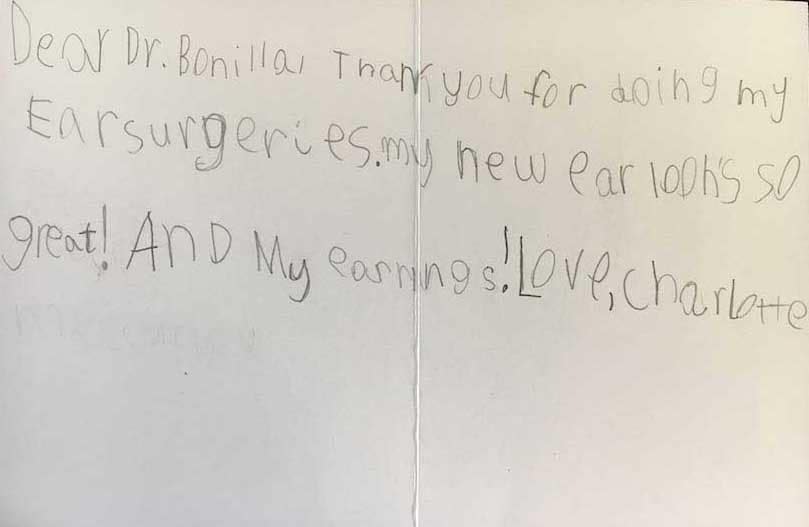 Dear Dr. Bonilla, Thank you for doing my
Ear surgeries. my new ear look's so
great! AND My earrings! Love, Charlotte